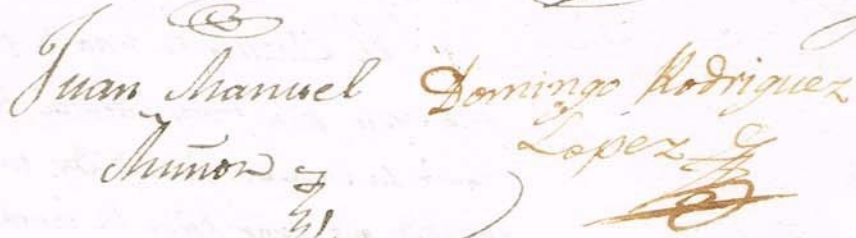 Juan Manuel
Muñoz
Domingo Rodriguez
Lopez